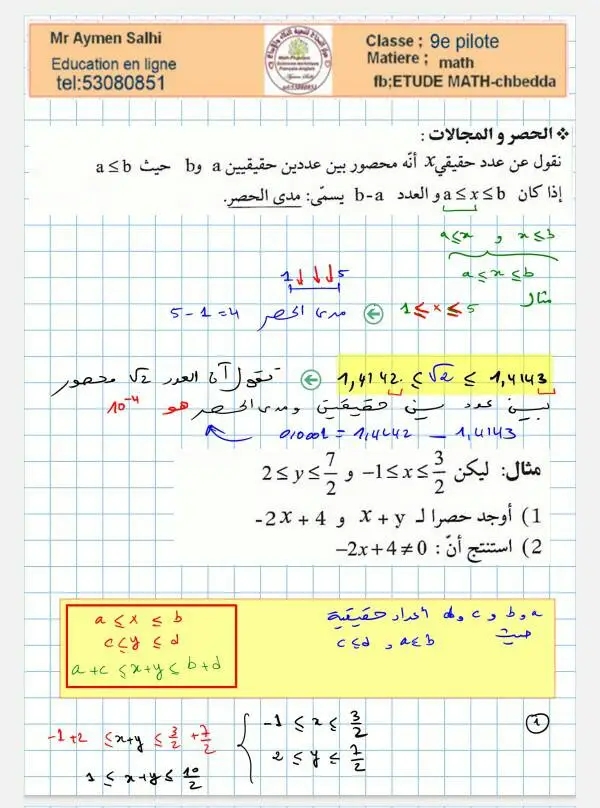 Mr Aymen Salhi
Education en ligne
tel:53080851
Classe ; 9e pilote
Matiere ; math
fb;ETUDE MATH-chbedda
❖ الحصر و المجالات :
نقول عن عدد حقيقي x أنّه محصور بين عددين حقيقيين a و b حيث a ≤ b
إذا كان a ≤ x ≤ b و العدد b-a يسمّى: مدى الحصر.
a ≤ x و x ≤ b
a ≤ x ≤ b
مثال
1 ↓ ↓ ↓ 5
1 ≤ x ≤ 5 ← مدى الحصر 5 - 1 = 4
1,4142 ≤ √2 ≤ 1,4143 ← نقول أن العدد √2 محصور
بين عدد سين حقيقين ومدى الحصر هو 10⁻⁴
0,0001 = 1,4142 - 1,4143
مثال: ليكن -1 ≤ x ≤ 3/2 و 2 ≤ y ≤ 7/2
1) أوجد حصرا لـ x + y و -2x + 4
2) استنتج أنّ : -2x + 4 ≠ 0
a و b و c و d أعداد حقيقية
حيث a ≤ b و c ≤ d
a ≤ x ≤ b
c ≤ y ≤ d
a + c ≤ x + y ≤ b + d
1
-1 ≤ x ≤ 3/2
2 ≤ y ≤ 7/2
-1 + 2 ≤ x + y ≤ 3/2 + 7/2
1 ≤ x + y ≤ 10/2